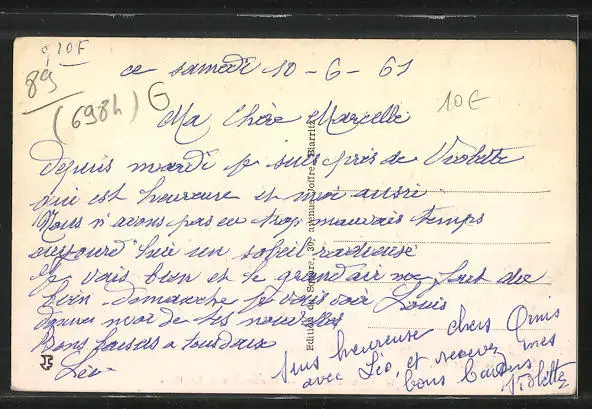 0,20F
89
(698h) G
10€
ce samedi 10-6-61
Ma Chère Marcelle
depuis mardi je suis près de Violette
qui est heureuse et moi aussi
Nous n'avons pas eu trop mauvais temps
aujourd'hui un soleil radieuse
Je vais bien et le grand air me fait du
bien. dimanche je vais voir Louis
donner moi de tes nouvelles
Bons baisers a tous deux
Léo
suis heureuse chers Amis
avec Léo, et recevez mes
bons baisers
Violette
Edition du Square, 30, avenue Joffre, Biarritz